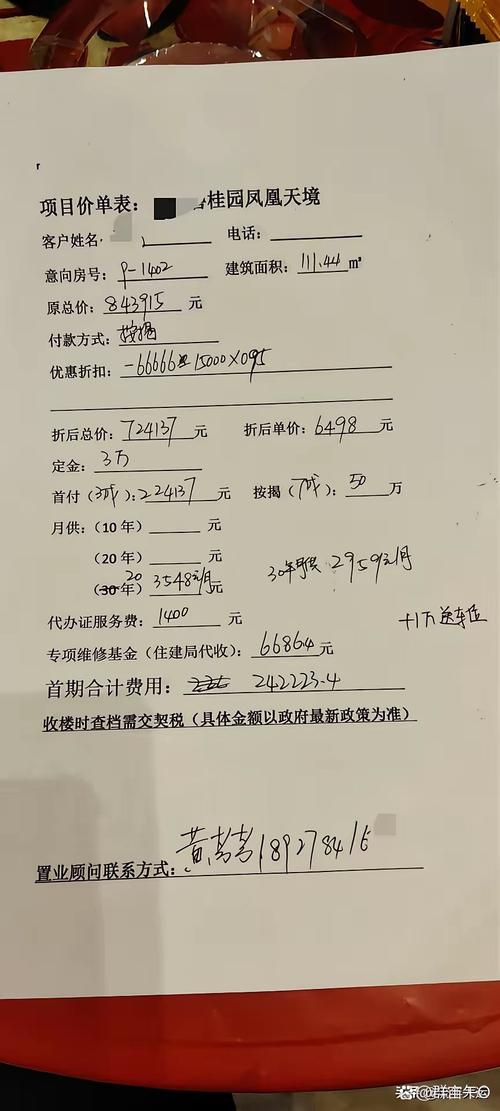 项目价单表：桂园凤凰天境
客户姓名 电话：
意向房号：9-1402 建筑面积：111.44 ㎡
原总价：843915 元
付款方式：按揭
优惠折扣：-66666 15000×095
折后总价：724137 元 折后单价：6498 元
定金：3万
首付（3成）：224137 元 按揭（7成）：50 万
月供：（10 年） 元
（20 年） 元
（30 年）20 3548元/月 元 30年 2959元/月
代办证服务费：1400 元 +1万送车位
专项维修基金（住建局代收）：6686.4 元
首期合计费用：242223.4
收楼时查档需交契税（具体金额以政府最新政策为准）
置业顾问联系方式： 黄 189278416
头条@群宙矢坛